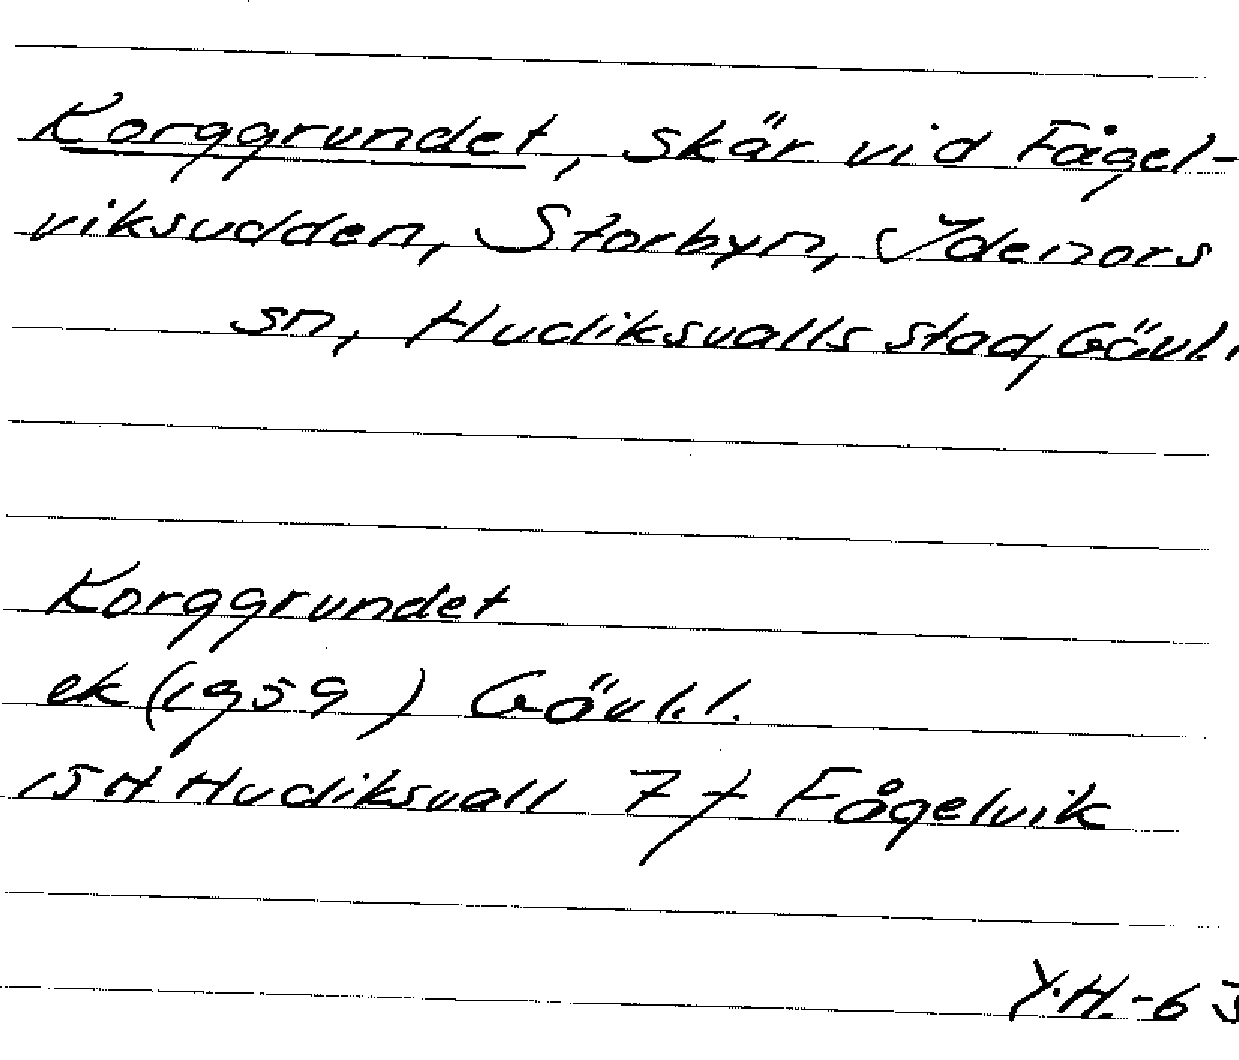 Korggrundet, skär vid Fågel-
viksudden, Storbyn, Idenors
sn, Hudiksvalls stad, Gävl.
Korggrundet
ek (1959) Gävl.l.
15H Hudiksvall 7f Fågelvik
Y.H.-6